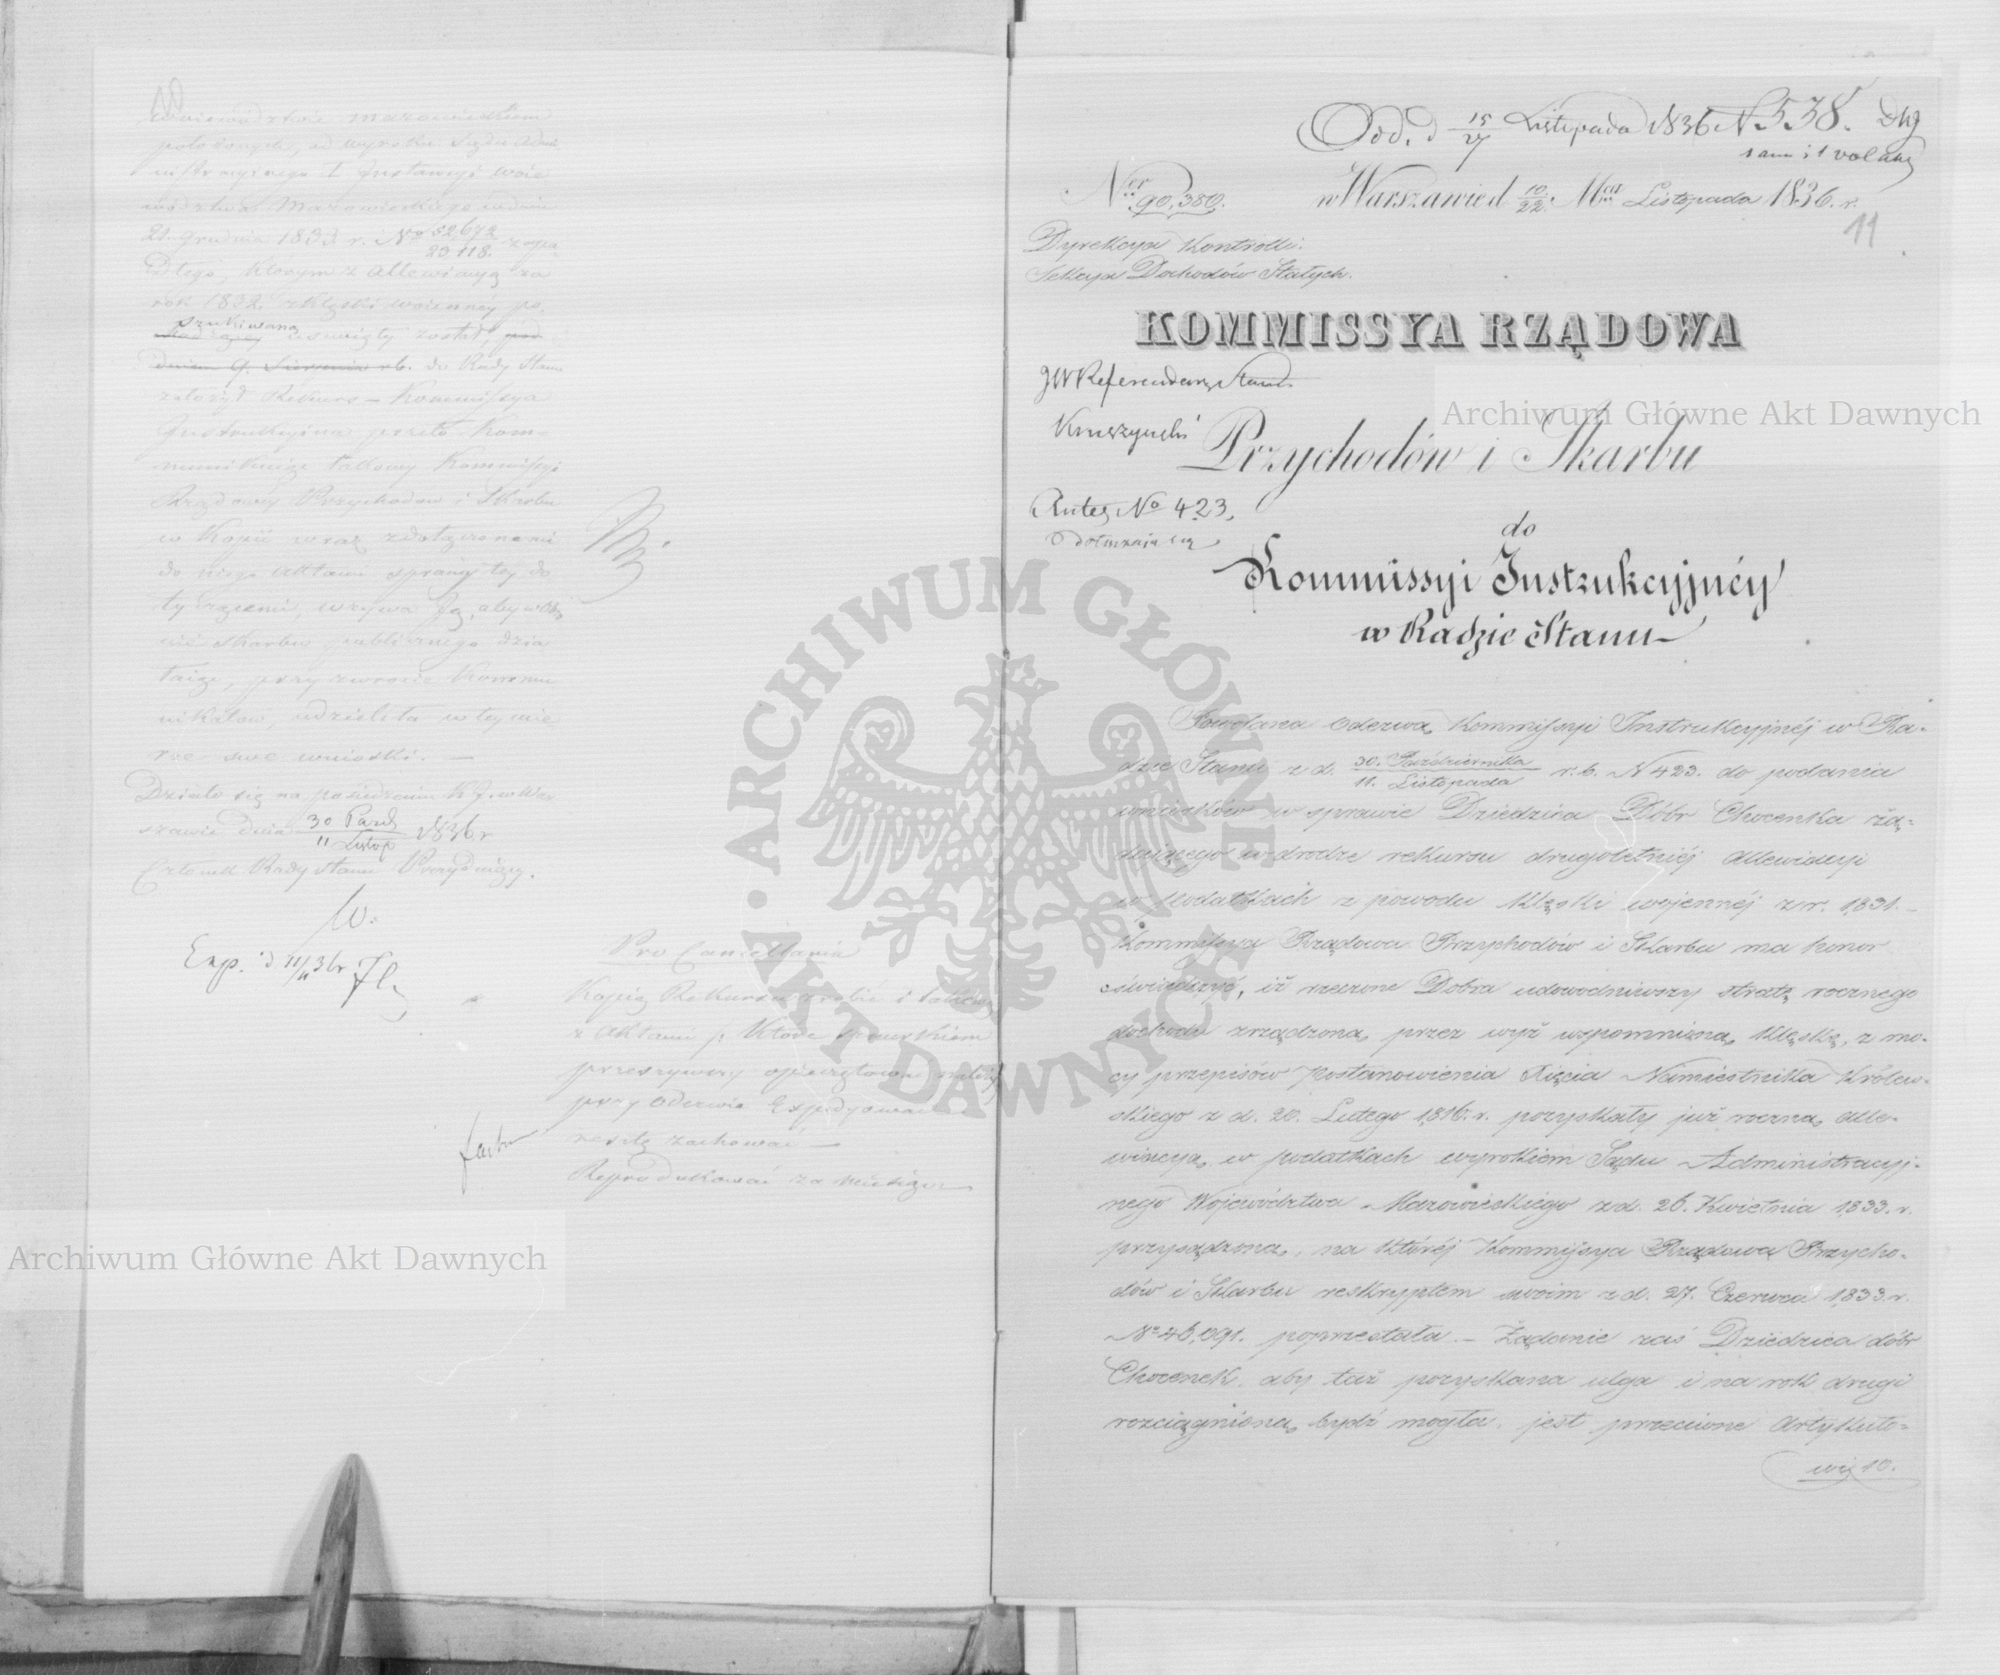 Wojewodztwie Mazowieckiem
położonych, od wyroku Sądu Admi-
nistracyjnego I Instancyi Woje
wództwa Mazowieckiego w dniu
21. Grudnia 1833 r. No 52672/23118. zapa-
dłego, którym z allewiacyą za
rok 1832. z klęski woienney po
szukiwaną usunięty został, pod
dniem 9. Sierpnia r.b. do Rady Stanu
założył Rekurs – Kommissya
Instrukcyina przeto kom-
munikuiąc takowy Kommissyi
Rządowey Przychodów i Skarbu
w Kopii wraz z dołączonemi
do niego Aktami sprawy tey do
tyczącemi, wzywa Ją, aby w Obro
nie Skarbu publicznego dzia
łaiąc, przy zwrocie Kommu
nikatów, udzieliła w tey mie
rze swe wnioski. —
Działo się na posiedzeniu K. J. w War
szawie dnia 30 Paźd/11 Listop 1836 r
Członek Rady Stanu Prezyduiący.
W.
Exp. d 11/11 36 r
Pro Cancellaria
Kopią Rekursu zrobić i takową
z Aktami p.
przeszywszy opieczętować należy
przy Odezwie Expedyować
resztę zachować —
Reprodukować za Miesiąc
Odd. d 15/27 Listopada 1836 N 538.
1 ann: i 1 vol akt
Ner 90,380. w Warszawie d 10/22. Mca Listopada 1836. r.
11
Dyrekcya Kontrolli.
Sekcya Dochodów Stałych.
KOMMISSYA RZĄDOWA
JW Referendarz Stanu
Kruszyński
Przychodów i Skarbu
Anteq No 423,
dołączaią się
do
Kommissyi Instrukcyjnéy
w Radzie Stanu
Powołana Odezwą Kommissyi Instrukcyjnéj w Ra-
dzie Stanu z d. 30. Października/11. Listopada r. b. N 423. do podania
wniosków w sprawie Dziedzica Dóbr Chocenka żą-
daiącego w drodze rekursu drugoletniéj Allewiacyi
w podatkach z powodu klęski wojennéj z r. 1831. –
Kommissya Rządowa Przychodów i Skarbu ma honor
oświadczyć, iż rzeczone Dobra udowodniwszy stratę rocznego
dochodu zrządzoną przez wyż wspomnioną klęskę, z mo-
cy przepisów Postanowienia Xięcia Namiestnika Królew-
skiego z d. 20. Lutego 1816. r. pozyskały już roczną alle-
wiacyą w podatkach wyrokiem Sądu Administracyj-
nego Województwa Mazowieckiego z d. 26. Kwietnia 1833. r.
przysądzoną, na któréj Kommissya Rządowa Przycho-
dów i Skarbu reskryptem swoim z d. 27. Czerwca 1833. r.
No 46,091. poprzestała. – Żądanie zaś Dziedzica dóbr
Chocenek. aby taż pozyskana ulga i na rok drugi
rozciągnioną bydź mogła. jest przeciwne Artykuło-
wi 10.
Archiwum Główne Akt Dawnych
Archiwum Główne Akt Dawnych
ARCHIWUM GŁÓWNE AKT DAWNYCH